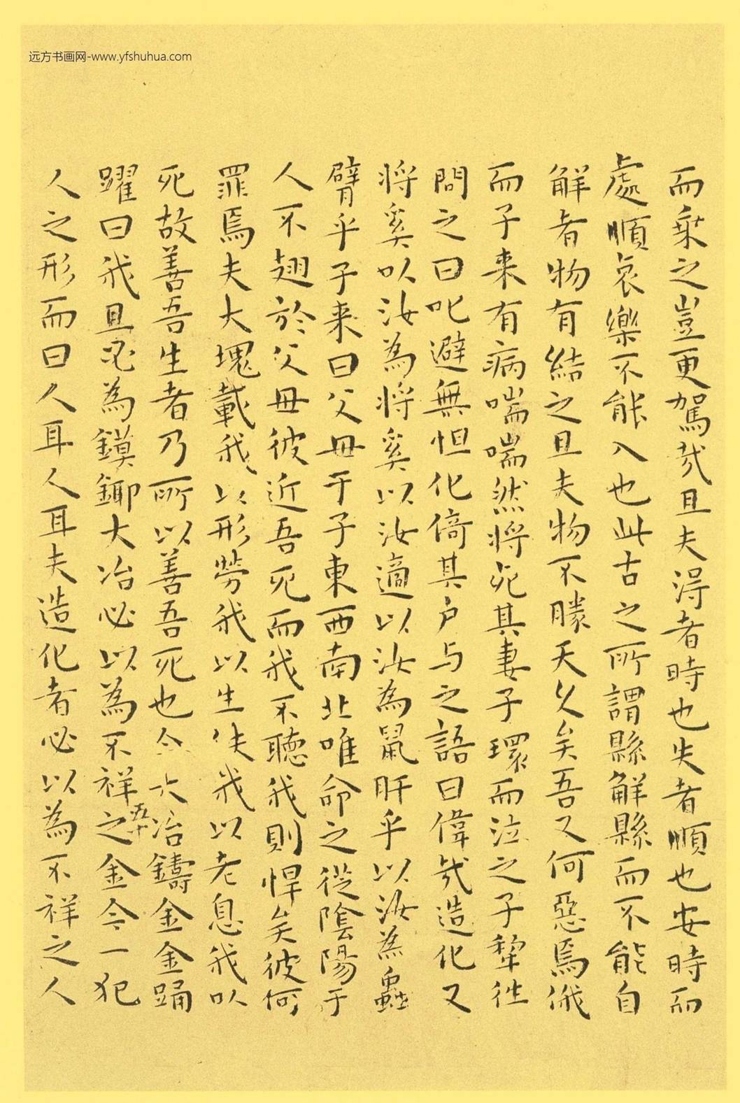 远方书画网-www.yfshuhua.com
而乗之豈更駕㢤且夫淂者時也失者順也安時而
處順哀樂不能入也此古之所謂縣解縣而不能自
解者物有結之且夫物不勝天久矣吾又何惡焉俄
而子来有病喘喘然将死其妻子環而泣之子犂往
問之曰叱避無怛化倚其戶与之語曰偉㢤造化又
将奚以汝為将奚以汝適以汝為鼠肝乎以汝為蟲
臂乎子来曰父母于子東西南北唯命之從陰陽于
人不翅於父母彼近吾死而我不聽我則悍矣彼何
罪焉夫大塊載我以形勞我以生佚我以老息我以
死故善吾生者乃所以善吾死也今大冶鑄金金踊
躍曰我且必為鏌鋣大冶必以為不祥之金今一犯
人之形而曰人耳人耳夫造化者必以為不祥之人
五十